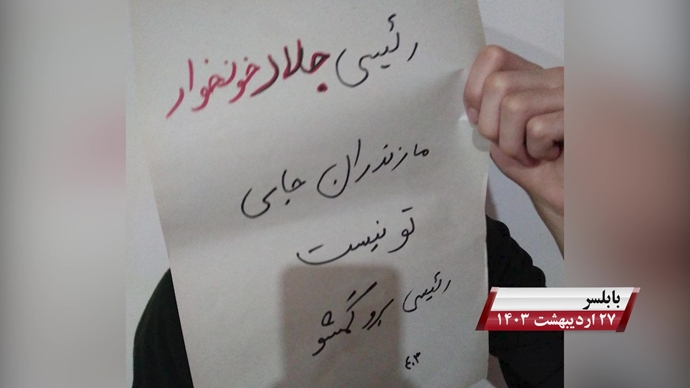 رئیسی جلاد خونخوار
مازندران جای
تو نیست
رئیسی برو گمشو
۴۰۳
بابلسر
۲۷ اردیبهشت ۱۴۰۳